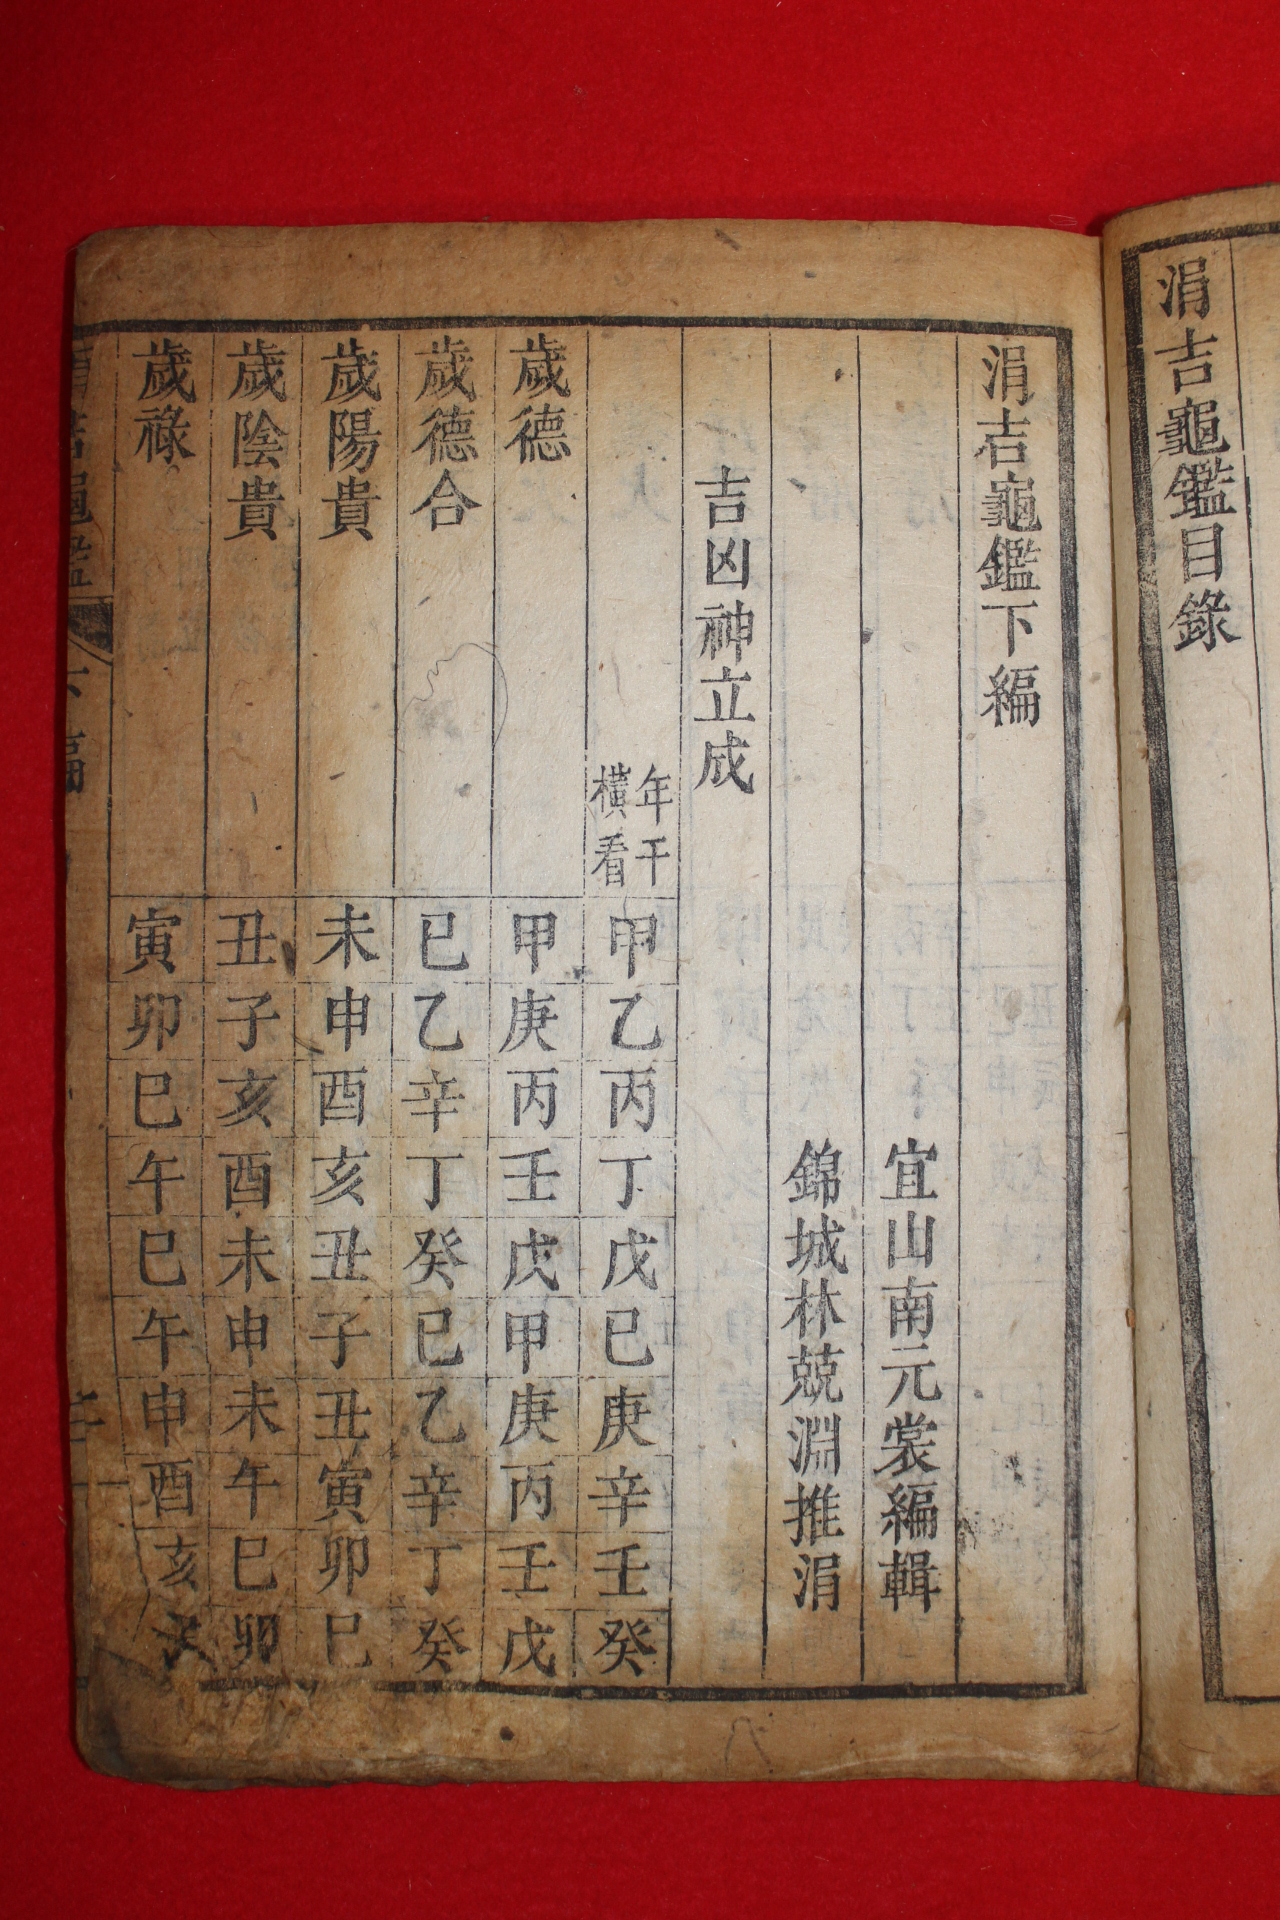 涓吉龜鑑目錄
涓吉龜鑑下編
宜山南元裳編輯
錦城林兢淵推涓
吉凶神立成
年干
橫看
甲乙丙丁戊巳庚辛壬癸
歲德
甲庚丙壬戊甲庚丙壬戊
歲德合
巳乙辛丁癸巳乙辛丁癸
歲陽貴
未申酉亥丑子丑寅卯巳
歲陰貴
丑子亥酉未申未午巳卯
歲祿
寅卯巳午巳午申酉亥